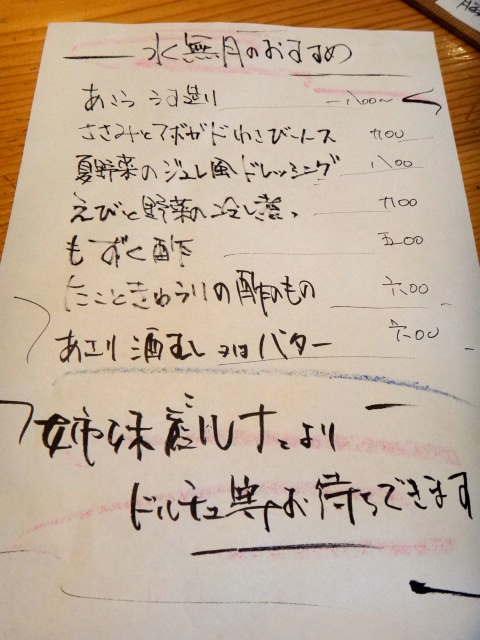 水無月のおすすめ
あこう うす造り 一八00〜
ささみとアボガドわさびソース 九00
夏野菜のジュレ風ドレッシング 八00
えびと野菜の冷し煮 九00
もずく酢 五00
たこときゅうりの酢のもの 六00
あさり酒むし 又は バター 六00
姉妹 より
ドルチェ お待ちできます